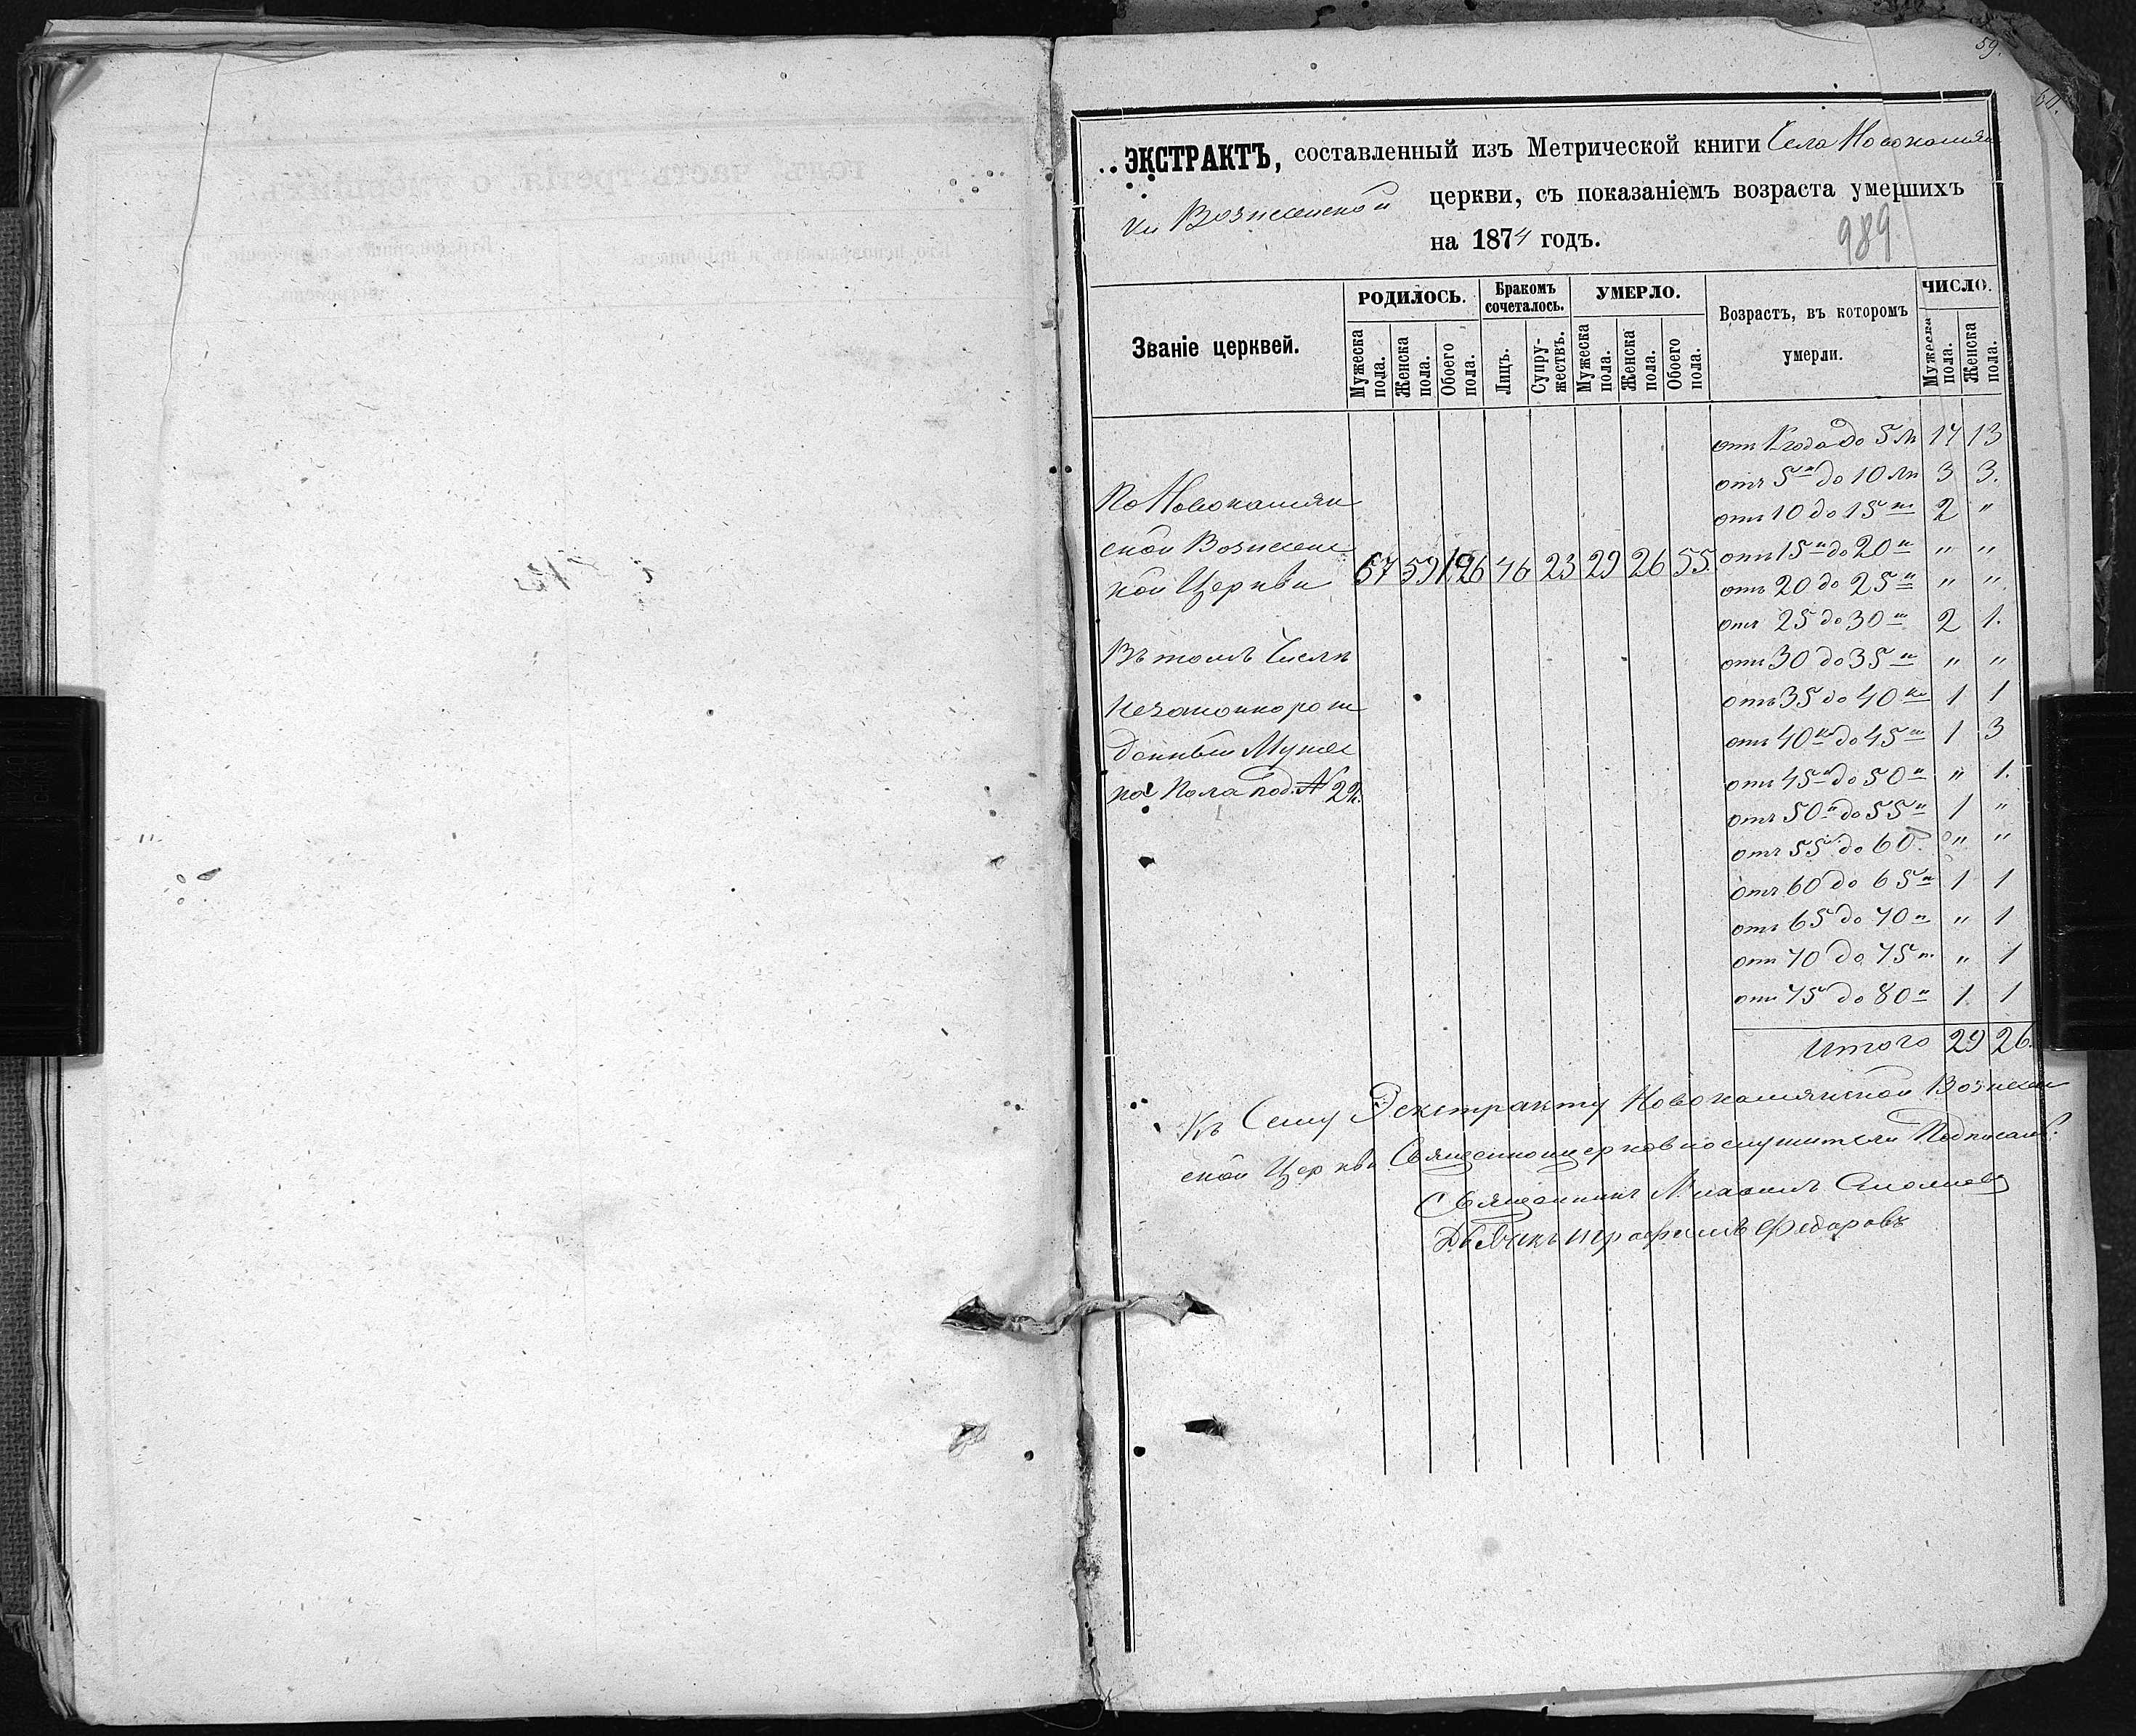 59.
ЭКСТРАКТЪ, составленный изъ Метрической книги Села Новокашпи
ки Вознесенской церкви, съ показаніемъ возраста умершихъ
на 1874 годъ.
989
Званіе церквей.
РОДИЛОСЬ.
Бракомъ сочеталось.
УМЕРЛО.
Возрастъ, въ которомъ умерли.
ЧИСЛО.
Мужеска пола.
Женска пола.
Обоего пола.
Лицъ.
Супружествъ.
Мужеска пола.
Женска пола.
Обоего пола.
Мужеска пола.
Женска пола.
ской Вознесенс
кой Церкви
67 59 126 46 23 29 26 55.
Въ томъ Числѣ
незаконнорож
денный Мужес
ка Пола под. № 22.
отъ 1 года до 5 лѣ 17 13
отъ 5 до 10 лѣ 3 3.
отъ 10 до 15 2 "
отъ 15 до 20 " "
отъ 20 до 25 " "
отъ 25 до 30 2 1.
отъ 30 до 35 " "
отъ 35 до 40 1 1
отъ 40 до 45 1 3
отъ 45 до 50 " 1.
отъ 50 до 55 1 "
отъ 55 до 60. " "
отъ 60 до 65 1 1
отъ 65 до 70 " 1
отъ 70 до 75 " 1
отъ 75 до 80 1 1
Итого 29 26.
Къ Сему Экстракту Вознесен
ской Церкви Священноцерковнослужители Подписалъ.
Священникъ Михаилъ
Ѳедоровъ